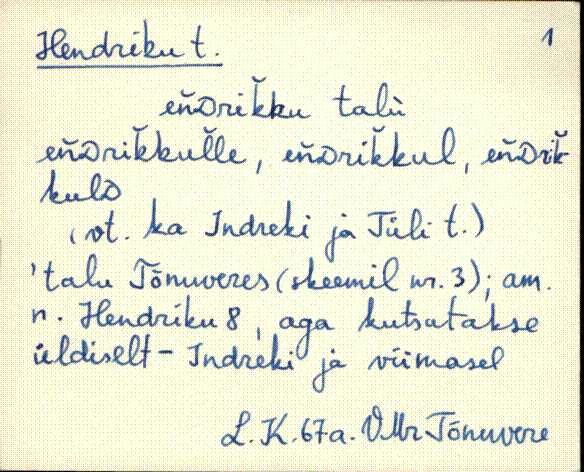 Hendriku t. 1
eňᴅriǩku talù
eňᴅriǩkuľle, eňᴅriǩkul, eňᴅriǩ-
kulᴅ
(vt. ka Indreki ja Tüli t.)
'talu Tõnuveres (skeemil nr. 3); am.
n. Hendriku 8, aga kutsutakse
üldiselt - Indreki ja viimasel
L. K. 67a. VMr Tõnuvere